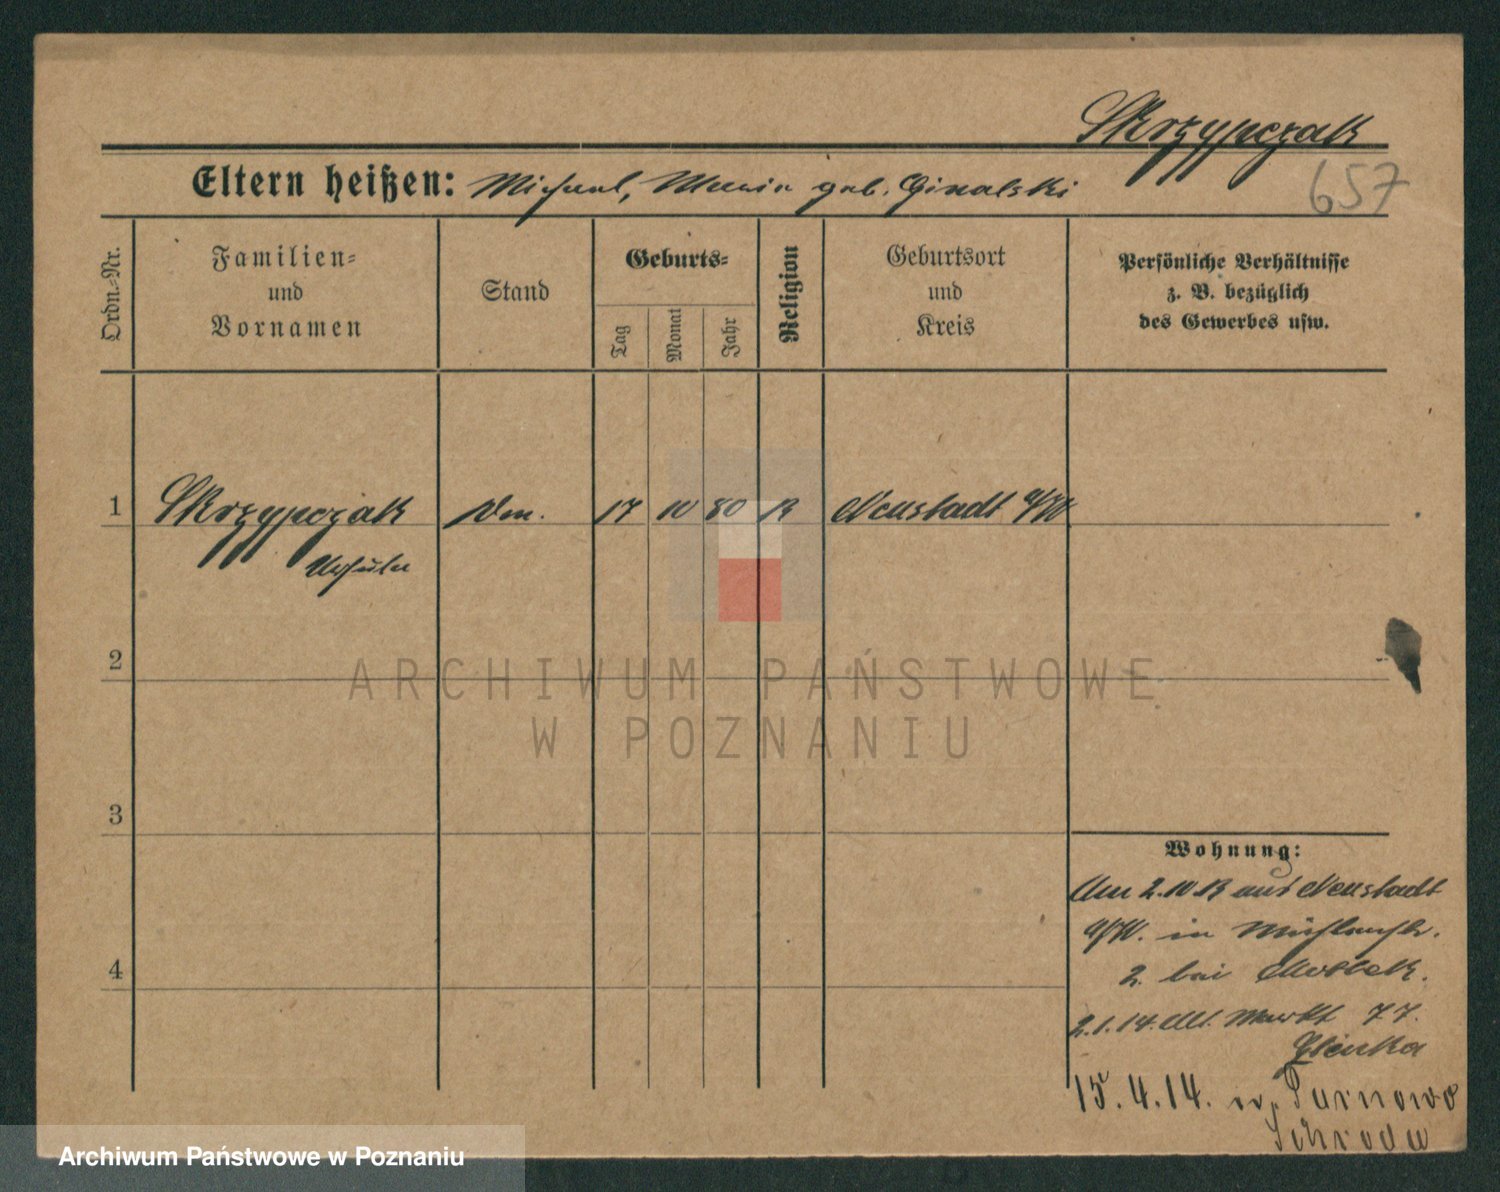 Skrzypczak
Eltern heißen: Michael, Maria geb. Ginalski
657
Ordn.-Nr.
Familien-
und
Vornamen
Stand
Geburts-
Tag
Monat
Jahr
Religion
Geburtsort
und
Kreis
Persönliche Verhältnisse
z. B. bezüglich
des Gewerbes usw.
1 Skrzypczak 17 10 80 Neustadt a/W
Ursula
2
ARCHIWUM PAŃSTWOWE
W POZNANIU
3
4
Wohnung:
Am 2.10.13 aus Neustadt
a/W. in Mühlenstr.
2 bei
2.1.14. Alt. Markt 77.
Glinka
15.4.14. Schroda
Archiwum Państwowe w Poznaniu